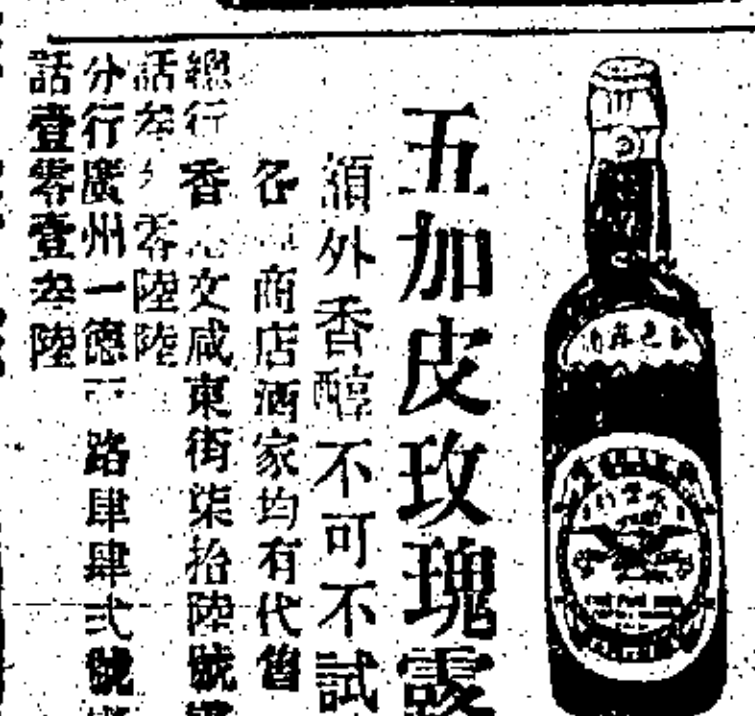 五加皮玫瑰露
額外香醇不可不試
各 商店酒家均有代售
總行香 文咸東街柒拾陸號
話叁 零陸陸
分行廣州一德 路肆肆弍號
話壹零壹叁陸